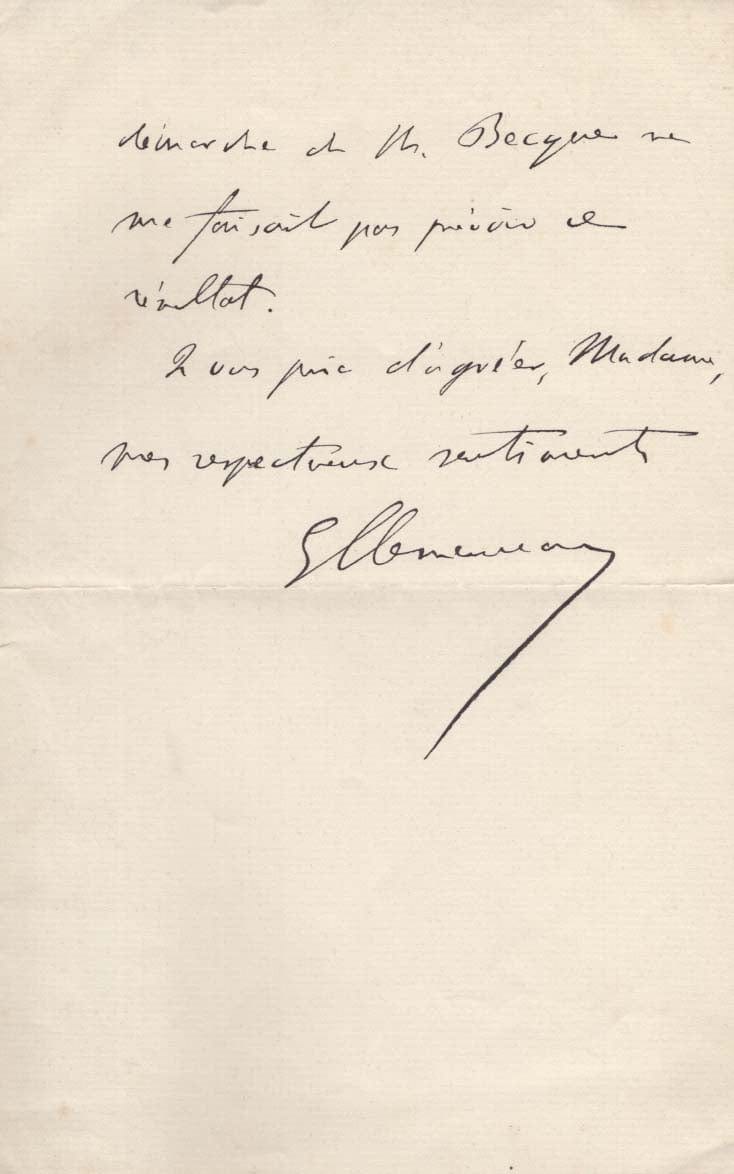 démarche de M. Becque ne
me faisait pas prévoir ce
résultat.
Je vous prie d'agréer, Madame,
mes respectueux sentiments
G Clemenceau